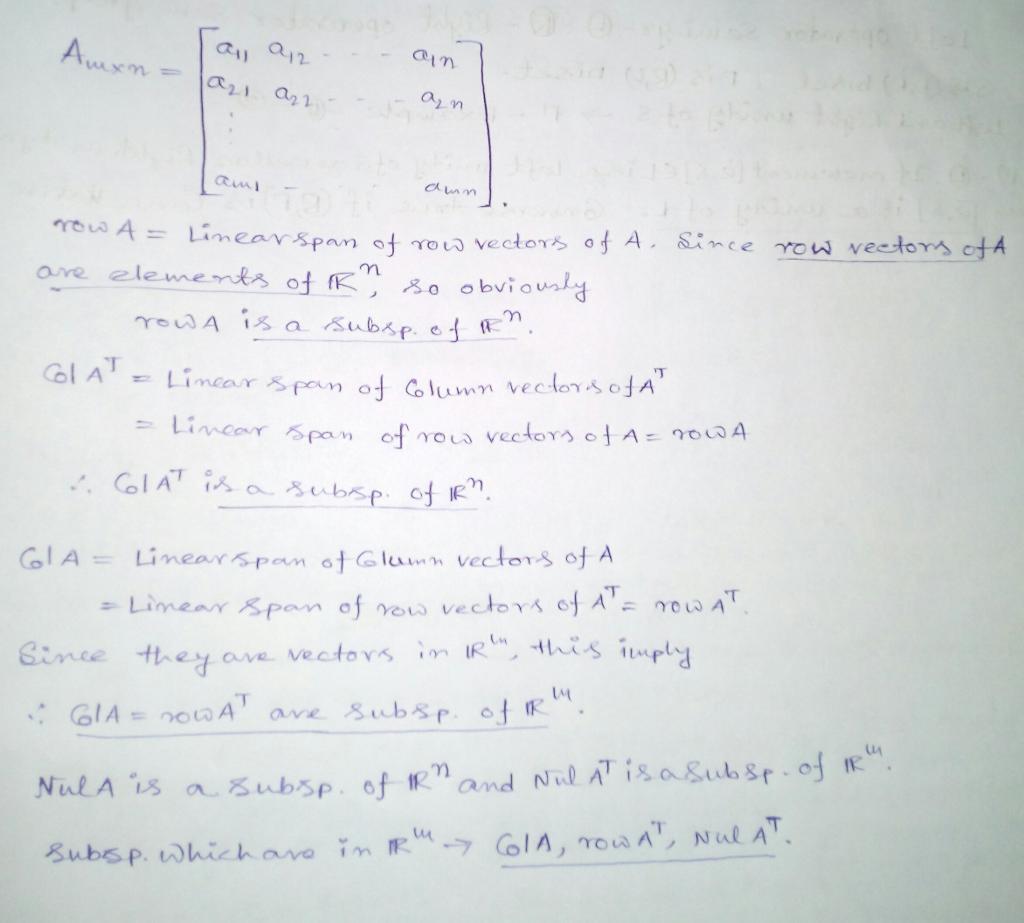 A_{m×n} = [a₁₁ a₁₂ - - - a₁ₙ
a₂₁ a₂₂ - - - a₂ₙ
⋮
a_{m1} - a_{mn}].
row A = Linear span of row vectors of A. Since row vectors of A
are elements of ℝⁿ, so obviously
row A is a subsp. of ℝⁿ.
Col Aᵀ = Linear span of Column vectors of Aᵀ
= Linear span of row vectors of A = row A
∴ Col Aᵀ is a subsp. of ℝⁿ.
Col A = Linear span of Column vectors of A
= Linear span of row vectors of Aᵀ = row Aᵀ.
Since they are vectors in ℝᵐ, this imply
∴ Col A = row Aᵀ are subsp. of ℝᵐ.
Nul A is a subsp. of ℝⁿ and Nul Aᵀ is a subsp. of ℝᵐ.
Subsp. which are in ℝᵐ → Col A, row Aᵀ, Nul Aᵀ.